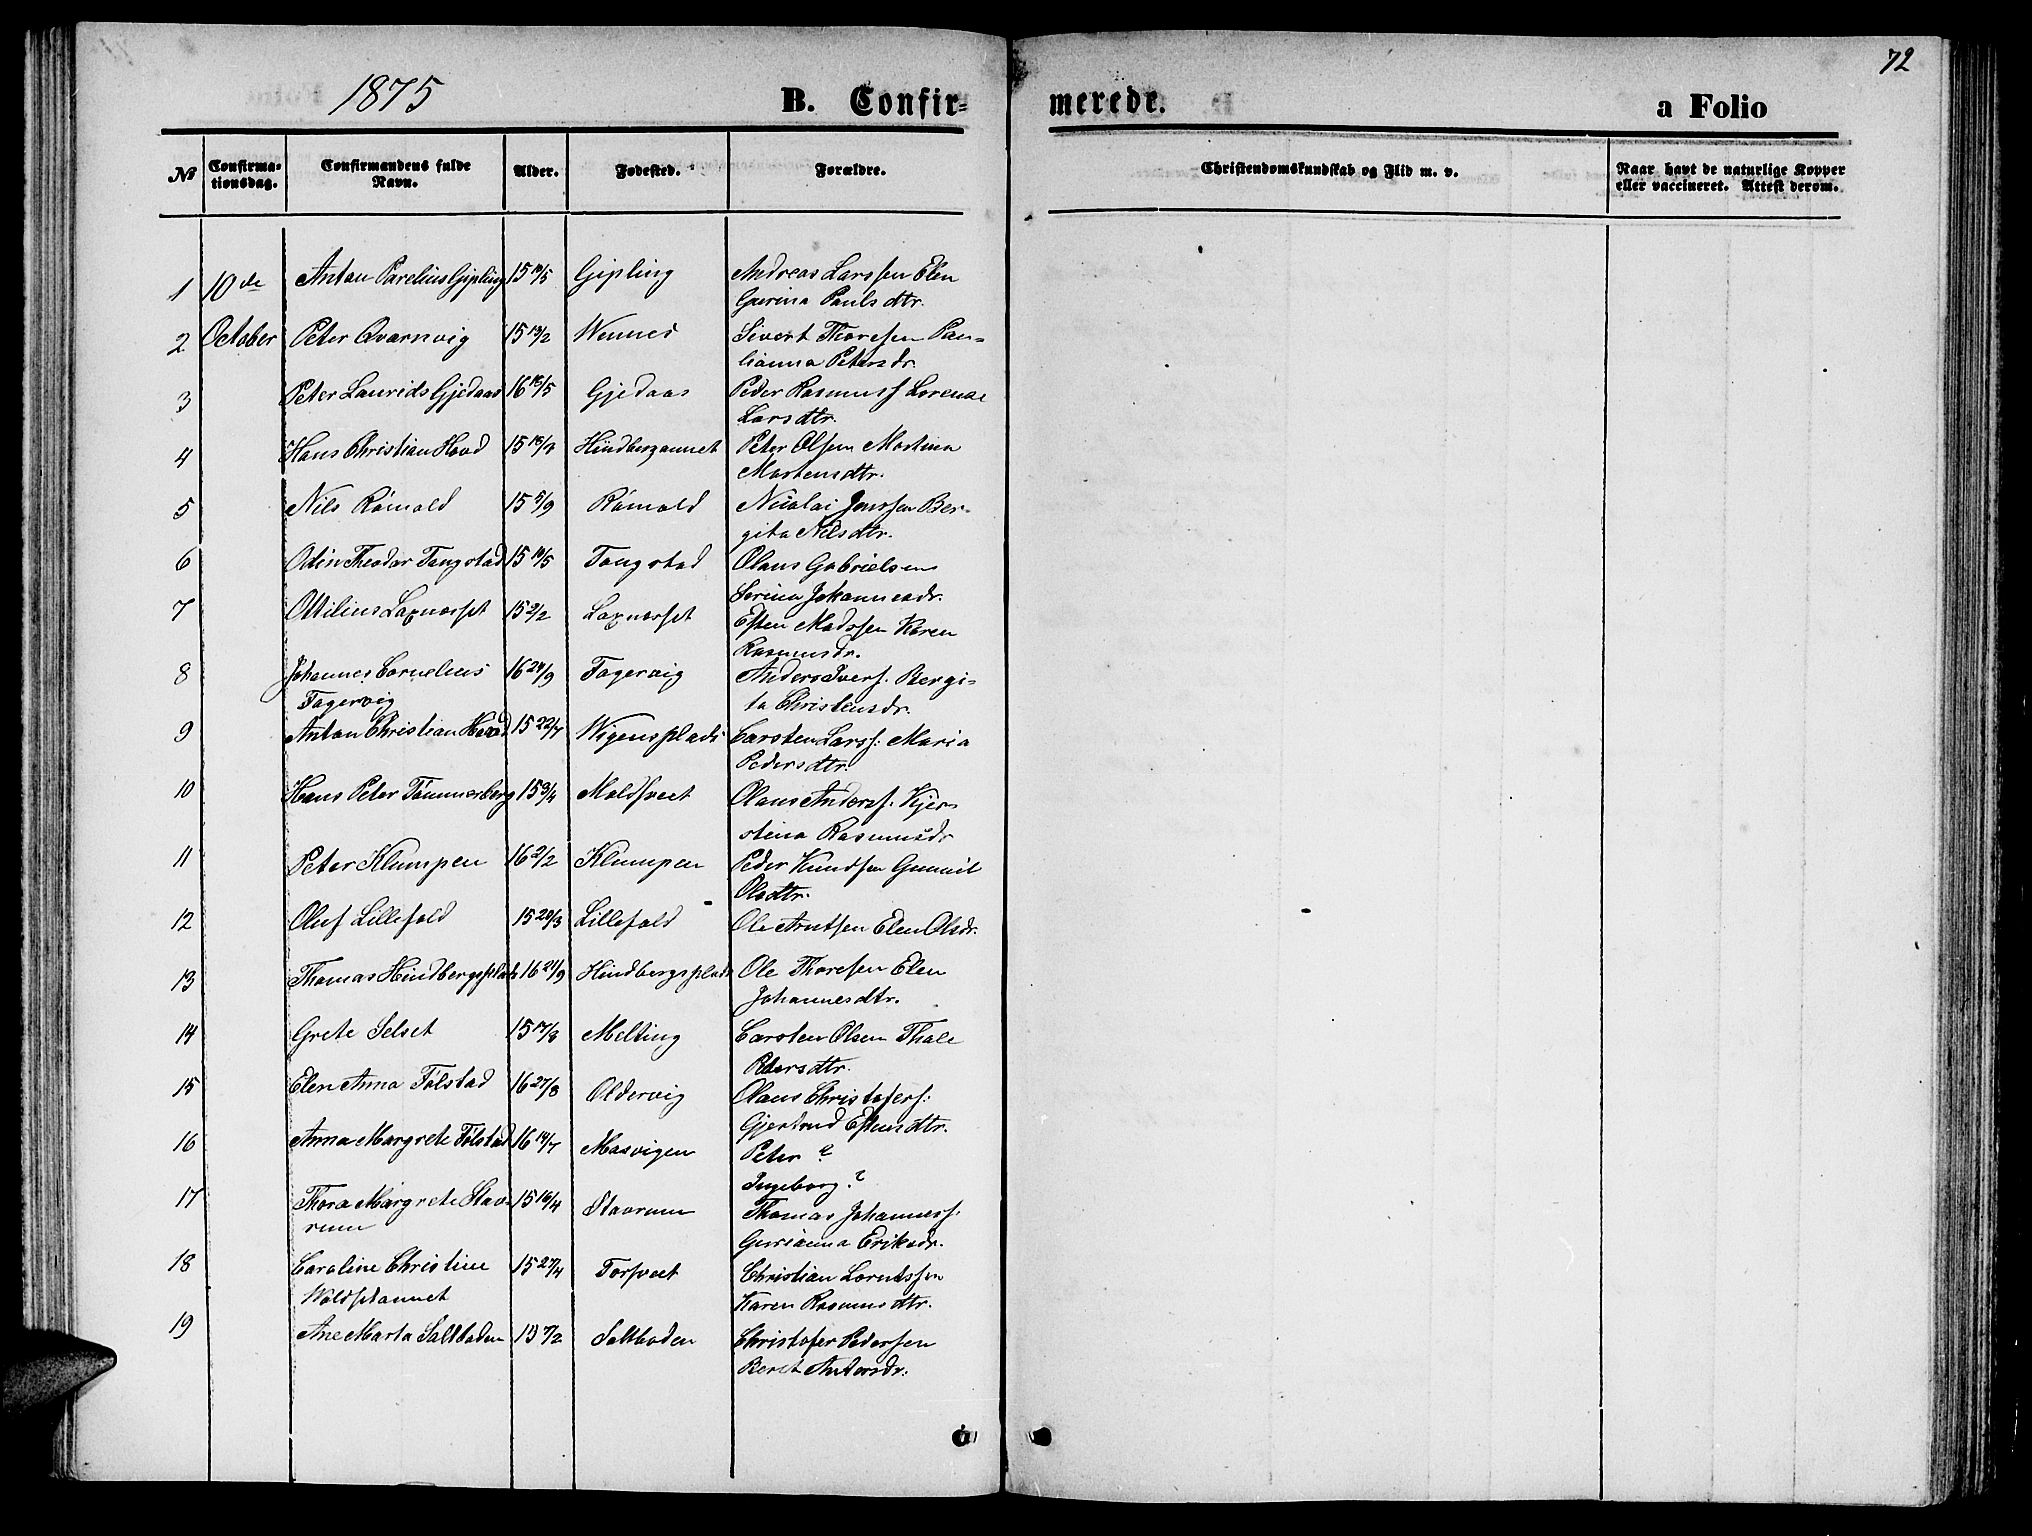 72
1875 B. Confir- meredr. a Folio
№ Confirma- Confirmandens fulde Alder. Fødested. Forældre. Christendomskundskab og Flid m. v. Naar havt de naturlige Kopper
tionsdag. Navn. eller vaccineret. Attest derom.
1 10de Anton Parelius Gipling 15 Gipling Andreas Larssen Elen
Gurina Pauls dtr.
2 October Peter Qvarnvig 15 13/2 Wennes Sivert Thoresen Pau-
lianna Petersdr.
3 Peter Laurids Gjedaas 16 Gjedaas Peder Rasmusf Lorense
Lars dtr.
4 Hans Christian Hood 15 Peter Olsen Martina
Martensdtr.
5 Nils Römold 15 5/9 Römold Nicolai Jonssen Ber-
gita Nilsdtr.
6 Odin Theodor Tangstad 15 Tangstad Olaus Gabrielsen
Serina Johannesdr.
7 Ottilius Laxnæsset 15 2/2 Laxnæsset Esten Madssen Karen
Rasmusdr.
8 Johannes Cornelius 16 24/9 Fagervig Anders Iversf. Bergi-
Fagervig ta Christensdr.
9 Anton Christian 15 22/7 Wigensplads Carsten Larsf: Maria
Pedersdtr.
10 Hans Peter Tömmerberg 15 3/4 Moldtveet Olaus Andersf. Kjer-
stina Rasmusdr
11 Peter Klumpen 16 2/2 Klumpen Peder Knudsen Gunnil
Olsdtr.
12 Oluf Lillefold 15 20/3 Lillefold Ole Arntsen Elen Olsdr.
13 Thomas Hindbergsplads 16 21/9 Hindbergsplads Ole Thoresen Elen
Johannesdtr.
14 Grete Selset 15 17/3 Melting Carsten Olsen Thale
Peders dtr.
15 Elen Anna Fölstad 16 27/8 Oldervig Olaus Christofersf:
Gjertrud Estens dtr.
16 Anna Margrete Fölstad 16 14/7 Masvigen Peter ?
Ingeborg. ?
17 Thora Margrete Stav- 15 16/4 Stavrum Thomas Johannesf.
rum Gurianna Eriksdr.
18 Caroline Christine 15 27/4 Torsveet Christian Lorntssen
Woldstannet Karen Rasmus dtr.
19 Ane Marta Saltboden 15 7/2 Saltboden Christofer Pedersen
Beret Andersdr.